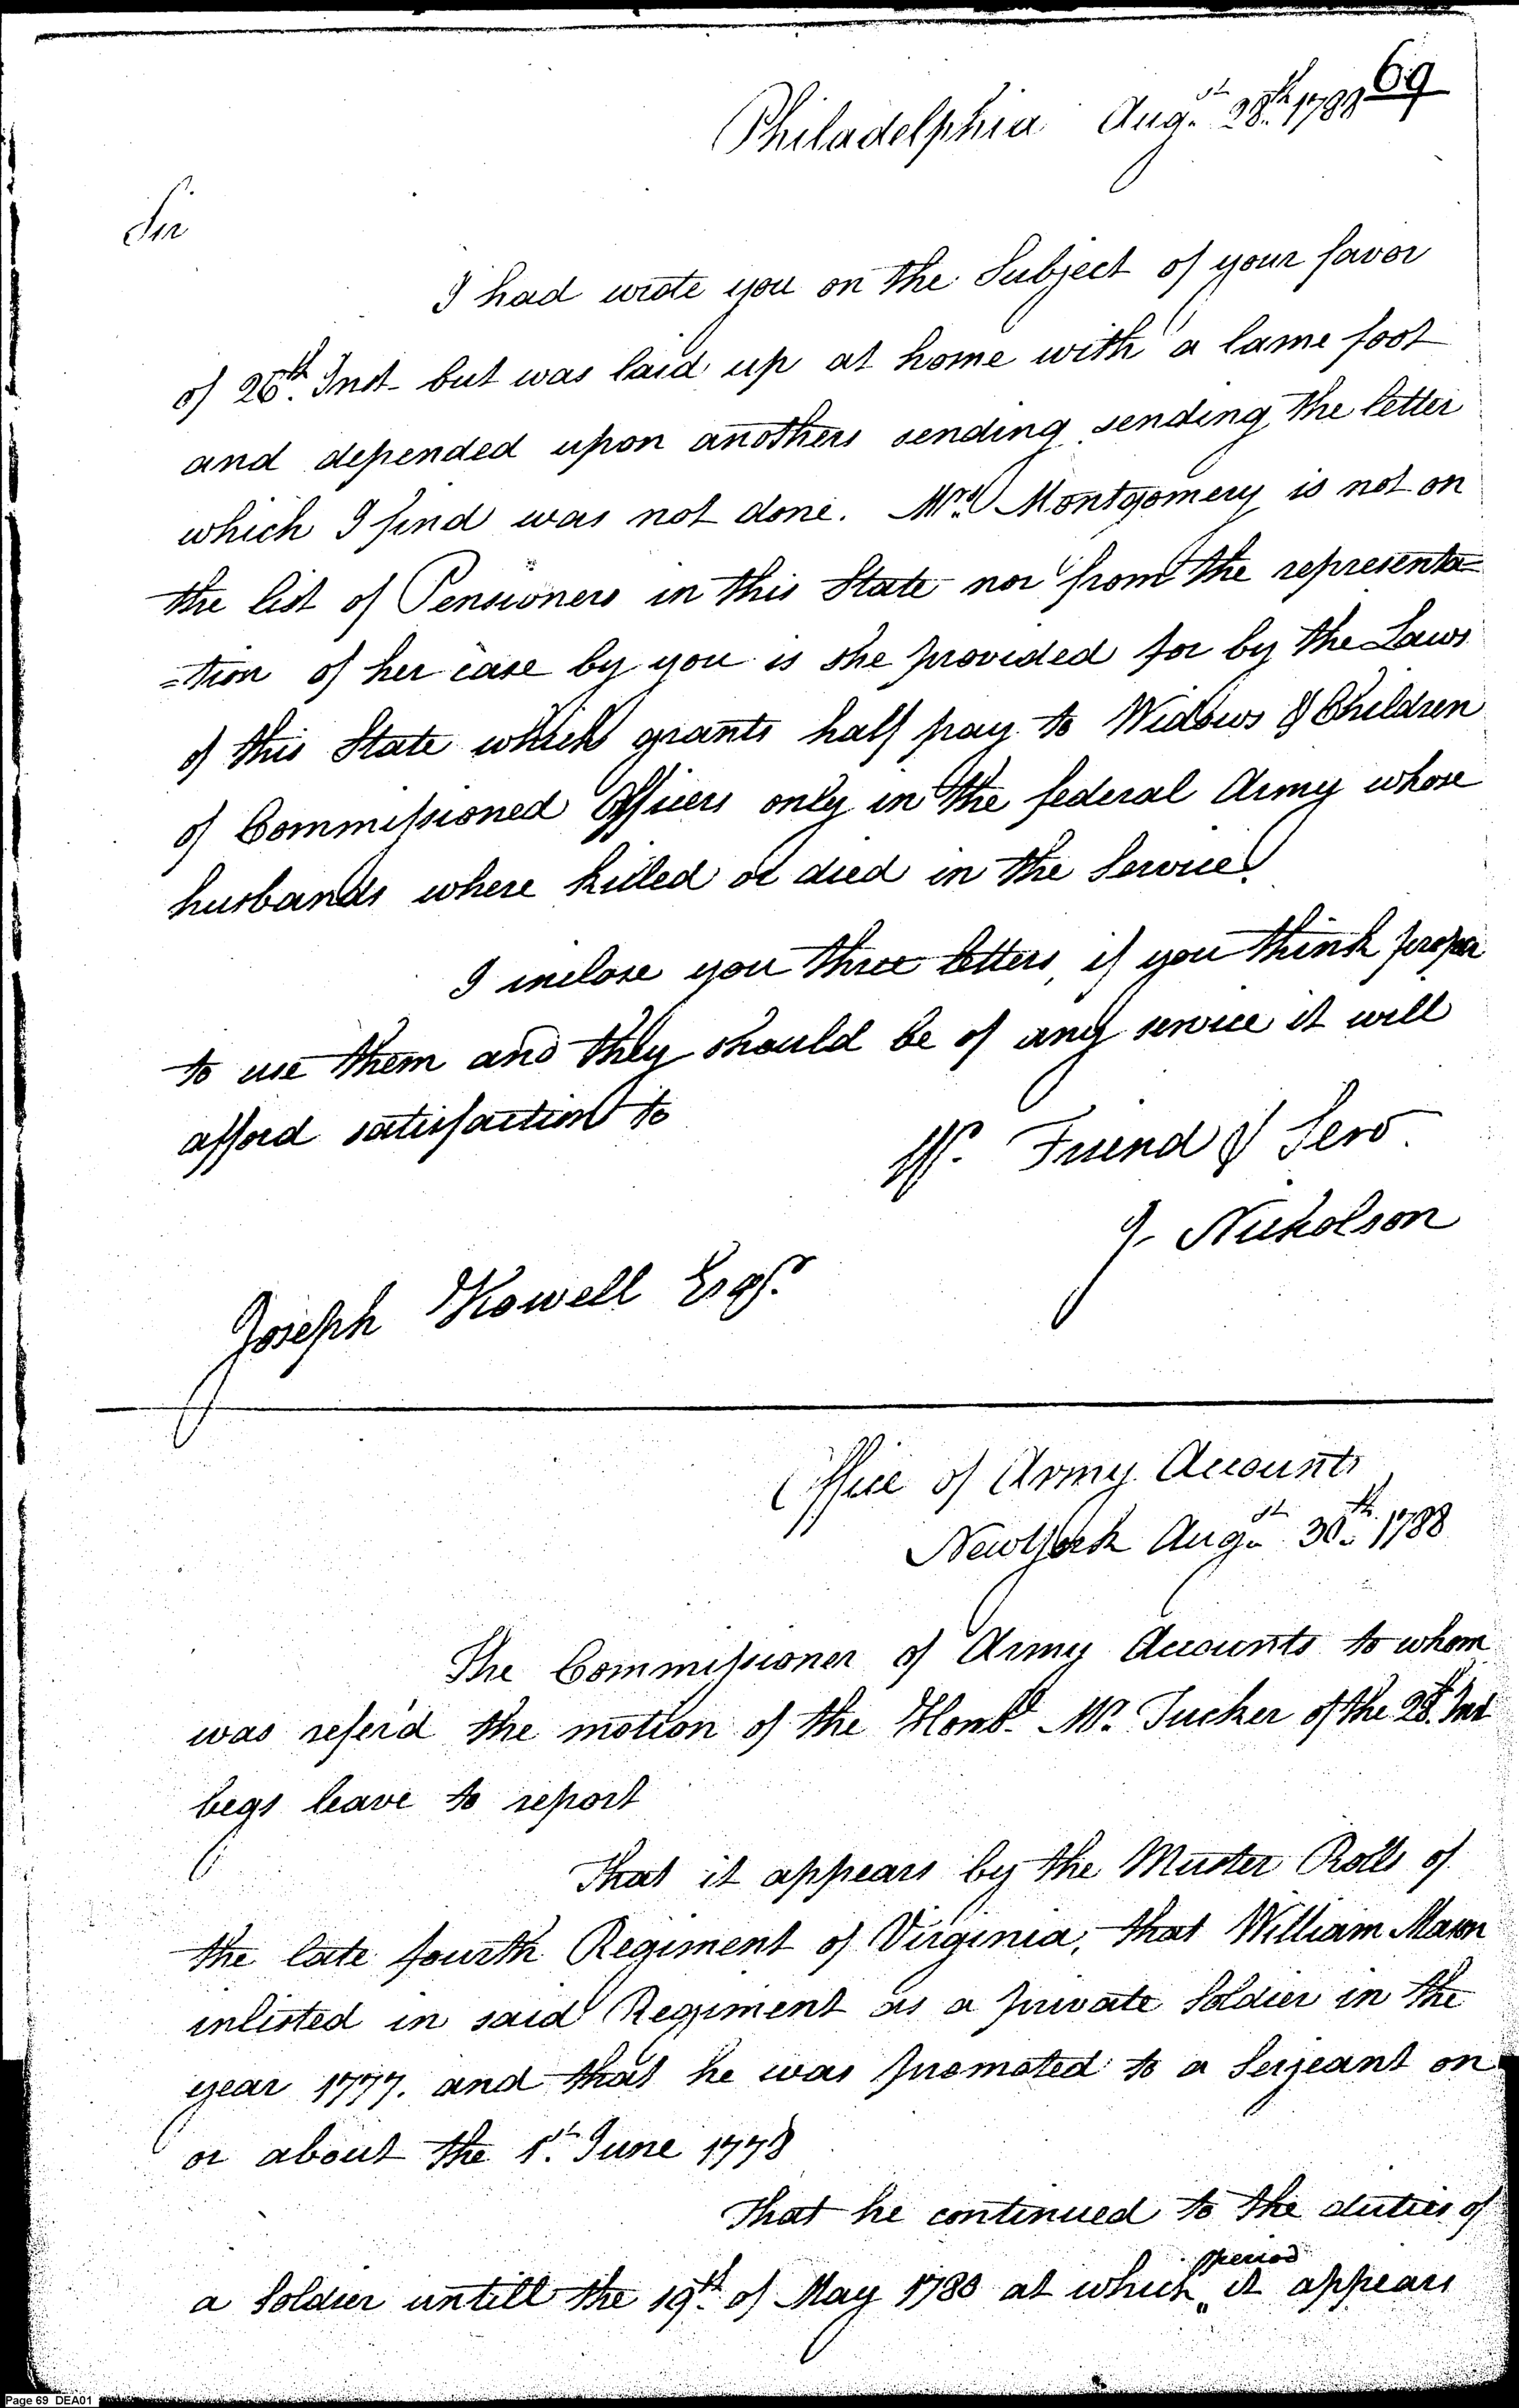 69
Philadelphia Augst 28th 1788
Sir
I had wrote you on the Subject of your favor
of 26th Inst but was laid up at home with a lame foot
and depended upon anothers sending sending the letter
which I find was not done. Mrs Montgomery is not on
the list of Pensioners in this State nor from the representa=
=tion of her case by you is she provided for by the Laws
of this State which grants half pay to Widows & Children
of Commissioned Officers only in the federal Army whose
husbands where killed or died in the Service.
I inclose you three letters, if you think proper
to use them and they should be of any service it will
afford satisfaction to
Yr. Friend & Serv.
J. Nicholson
Joseph Howell Esqr.
Office of Army Accounts
New York Augst 30th 1788
The Commissioner of Army Accounts to whom
was refer'd the motion of the Honb. Mr. Tucker of the 28th Inst
begs leave to report
That it appears by the Muster Rolls of
the late fourth Regiment of Virginia, that William Mason
inlisted in said Regiment as a private Soldier in the
year 1777. and that he was promoted to a Serjeant on
or about the 1st. June 1778
That he continued to the duties of
a Soldier untill the 19th of May 1780 at which period it appears
Page 69 DEA01